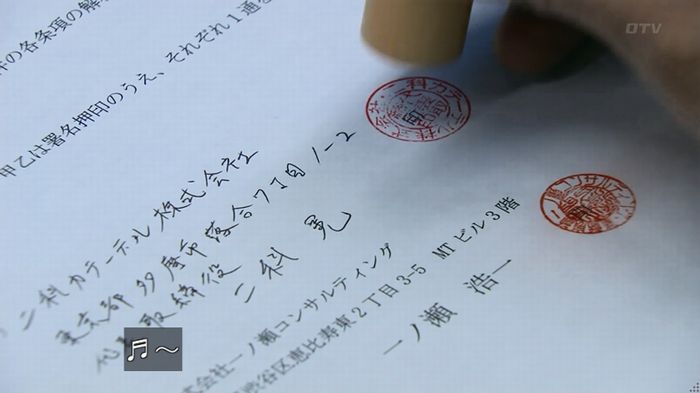 OTV
件の各条項の解
甲乙は署名押印のうえ、それぞれ1通を
二科カテーテル株式会社
東京都多摩市落合7丁目1-2
代表取締役 二科 晃
式会社一ノ瀬コンサルティング
渋谷区恵比寿東2丁目3-5 MTビル3階
一ノ瀬 浩一
♬〜